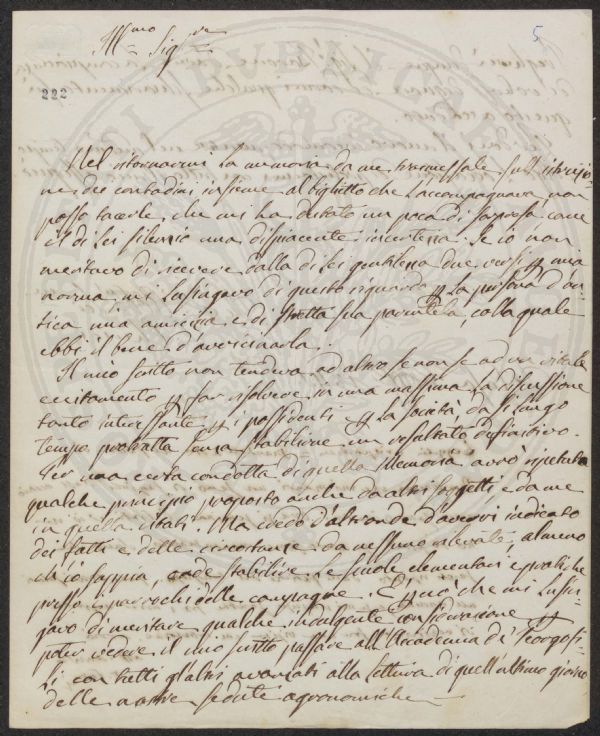 Ill.mo Sig.re
5
222
Nel ritornarmi la memoria da me trasmessale sull'istruzio-
ne dei contadini insieme al biglietto che l'accompagnava, non
posso tacerle, che mi ha destato un poco di sorpresa come
il di Lei silenzio una dispiacente incertezza. Se io non
meritavo di ricevere dalla di Lei gentilezza due versi p mia
norma, mi lusingavo di questo riguardo p la persona d'an-
tica mia amicizia e di stretta sua parentela, colla quale
ebbi il bene d'avvicinarla.
Il mio scritto non tendeva ad altro se non se ad un
eccitamento p far risolvere in una massima la discussione
tanto interessante p i possidenti p la società, da sì lungo
tempo protratta senza stabilirne un resultato definitivo.
Per una certa condotta di quella Memoria avrò ripetuto
qualche principio proposto anche da altri soggetti e da me
in quella citati. Ma credo d'altronde d'avervi indicato
dei fatti e delle circostanze da nessuno rilevate, almeno
ch'io sappia, onde stabilire le scuole elementari e pratiche
presso i parrochi delle campagne. E p ciò che mi lusin-
gavo di meritare qualche indulgente considerazione p
poter vedere il mio scritto passare all'Accademia de' Georgofi-
li con tutti gl'altri avanzati alla lettura di quell'ultimo giorno
delle nostre sedute agronomiche